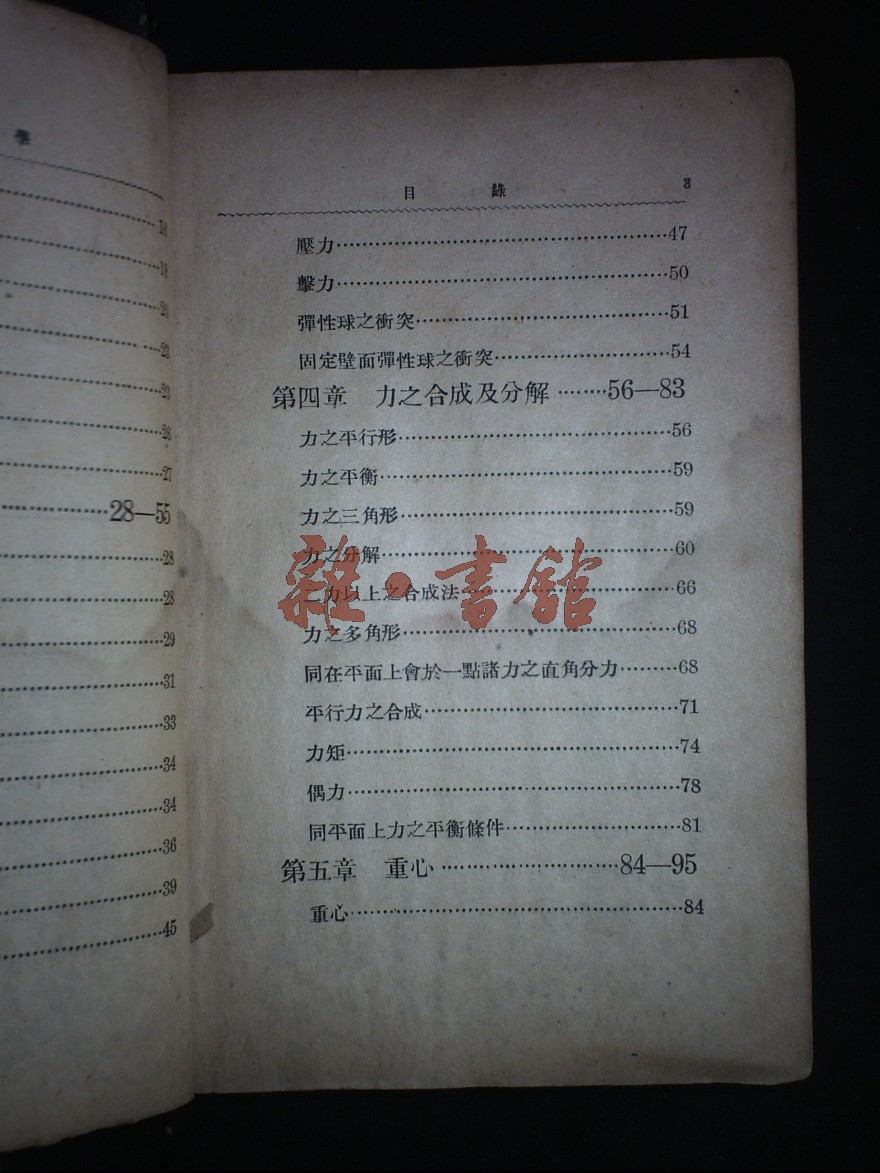 學
14
18
20
22
23
26
27
28—55
28
28
29
31
33
34
34
36
39
45
目 錄 3
壓力⋯⋯47
擊力⋯⋯50
彈性球之衝突⋯⋯51
固定壁面彈性球之衝突⋯⋯54
第四章 力之合成及分解⋯⋯56—83
力之平行形⋯⋯56
力之平衡⋯⋯59
力之三角形⋯⋯59
力之分解⋯⋯60
二力以上之合成法⋯⋯66
力之多角形⋯⋯68
同在平面上會於一點諸力之直角分力⋯⋯68
平行力之合成⋯⋯71
力矩⋯⋯74
偶力⋯⋯78
同平面上力之平衡條件⋯⋯81
第五章 重心⋯⋯84—95
重心⋯⋯84
雜·書館